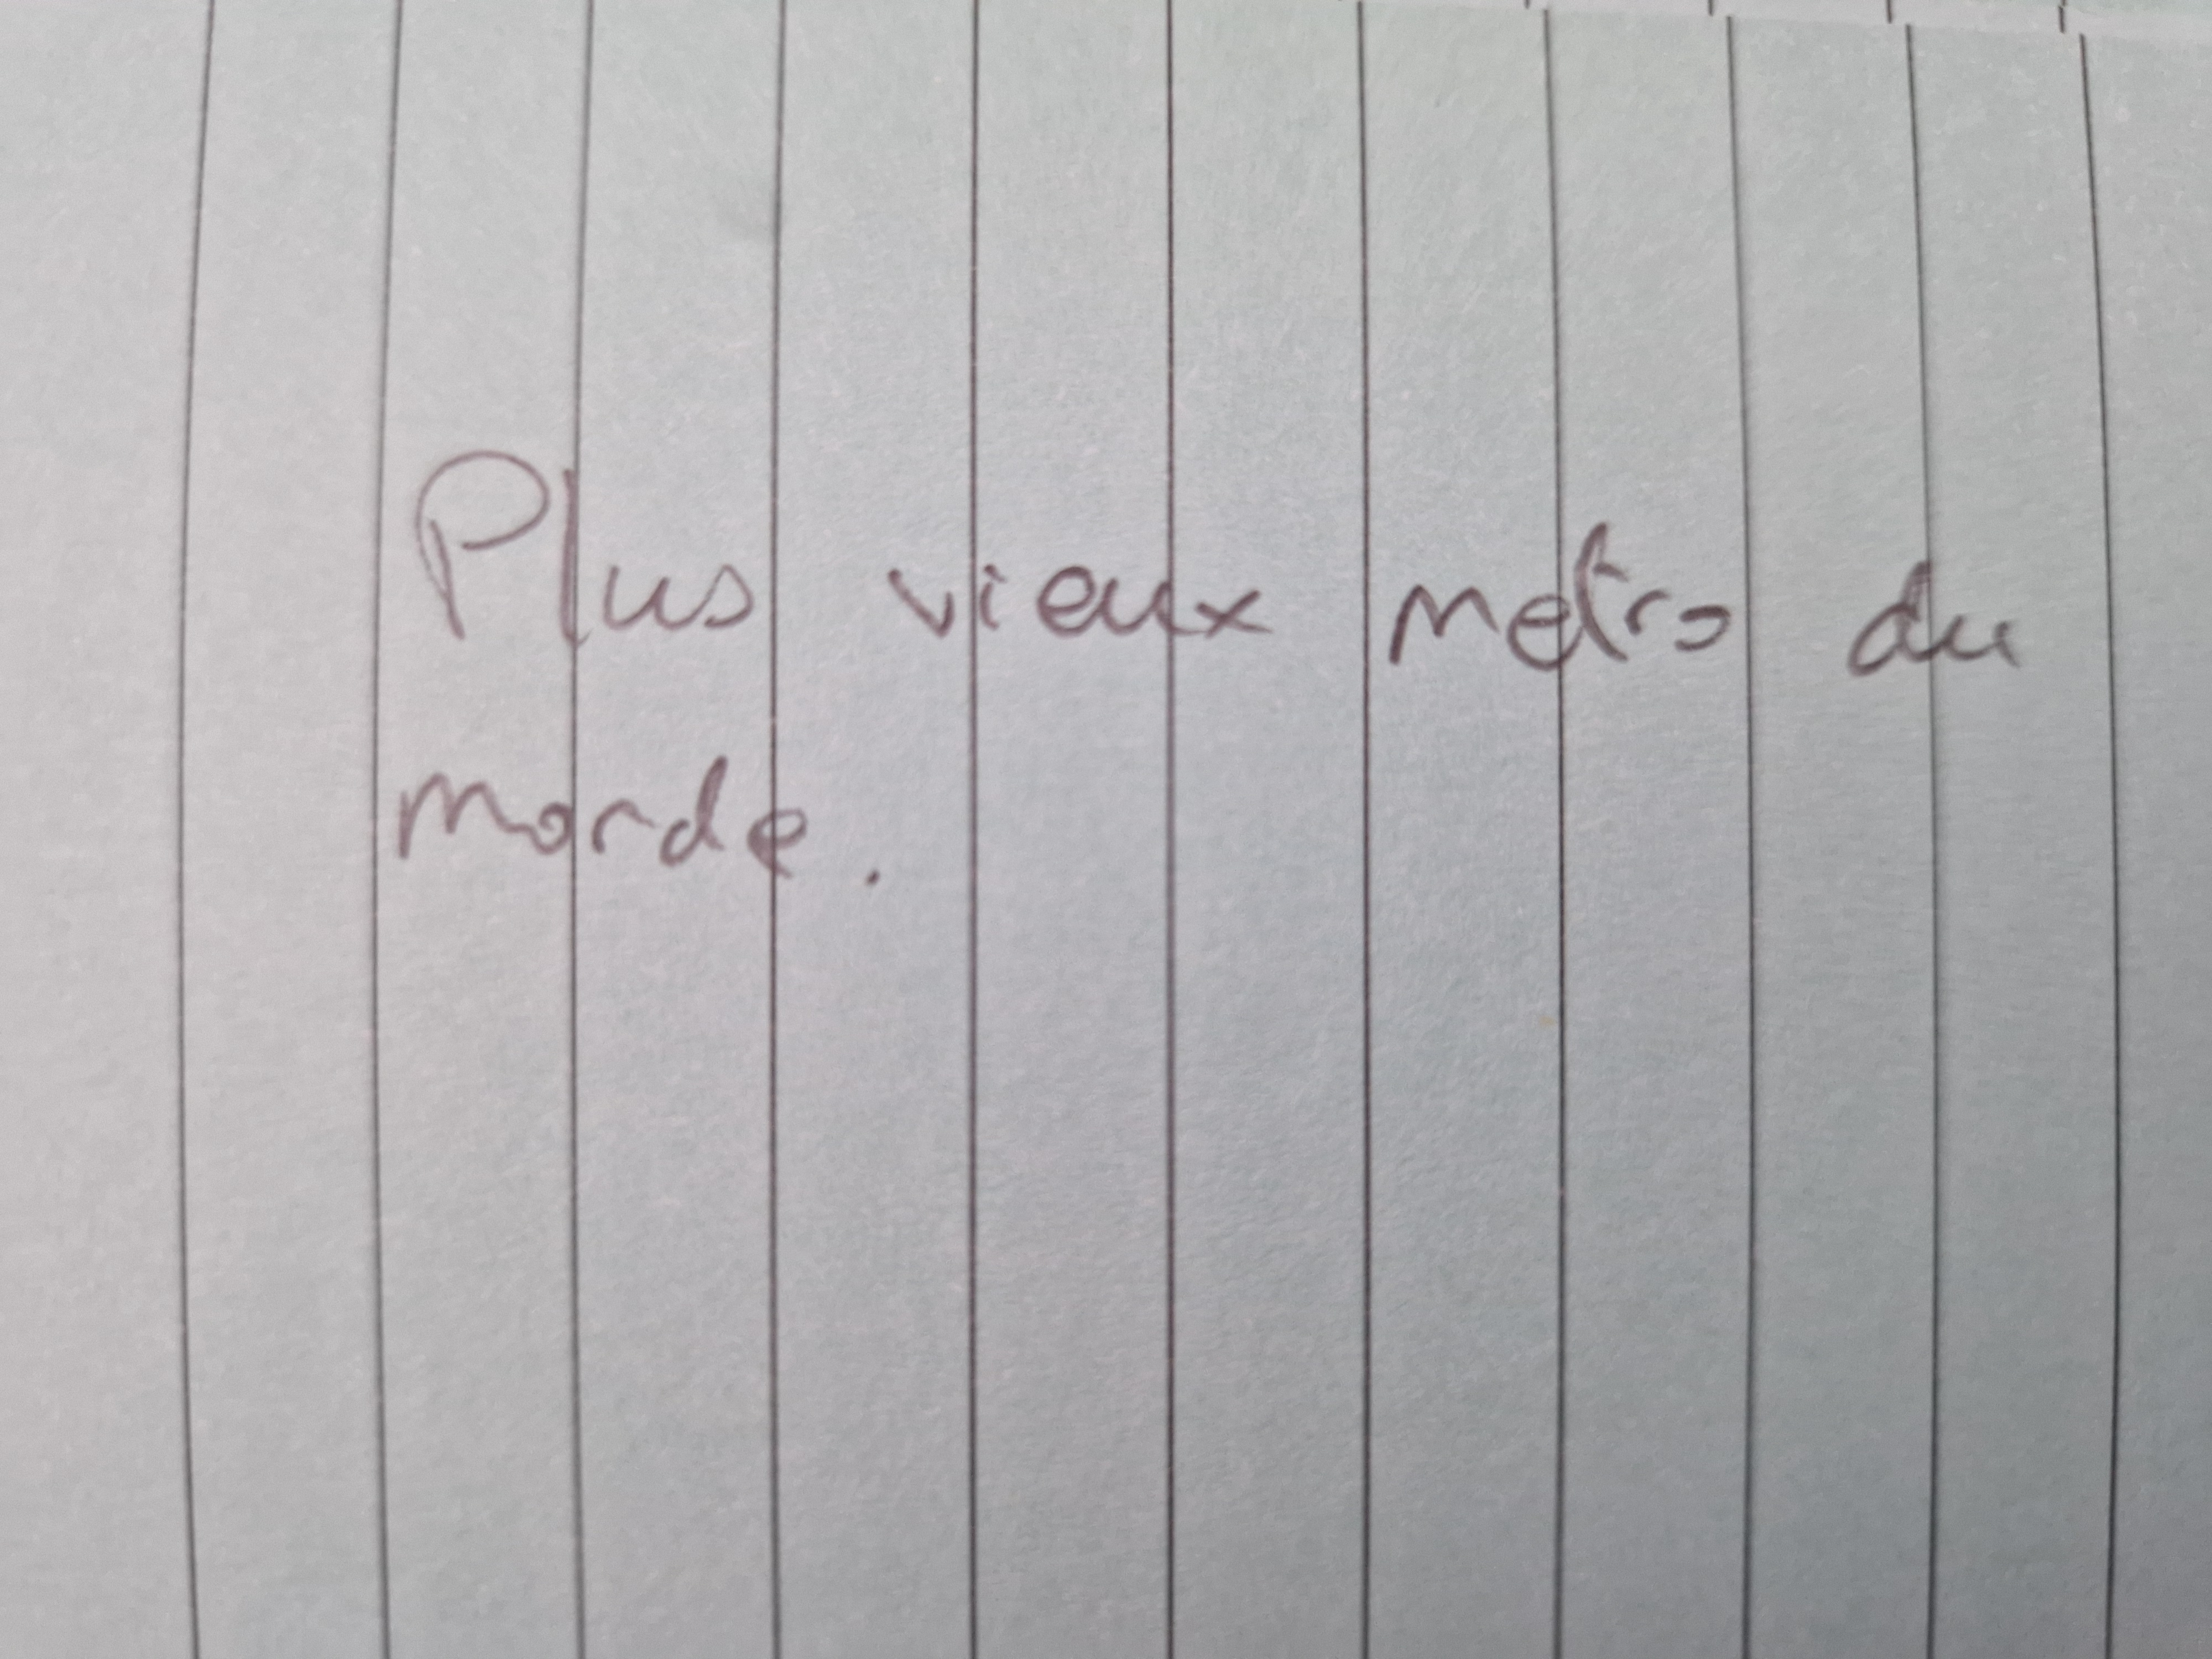 Plus vieux metro du
monde.